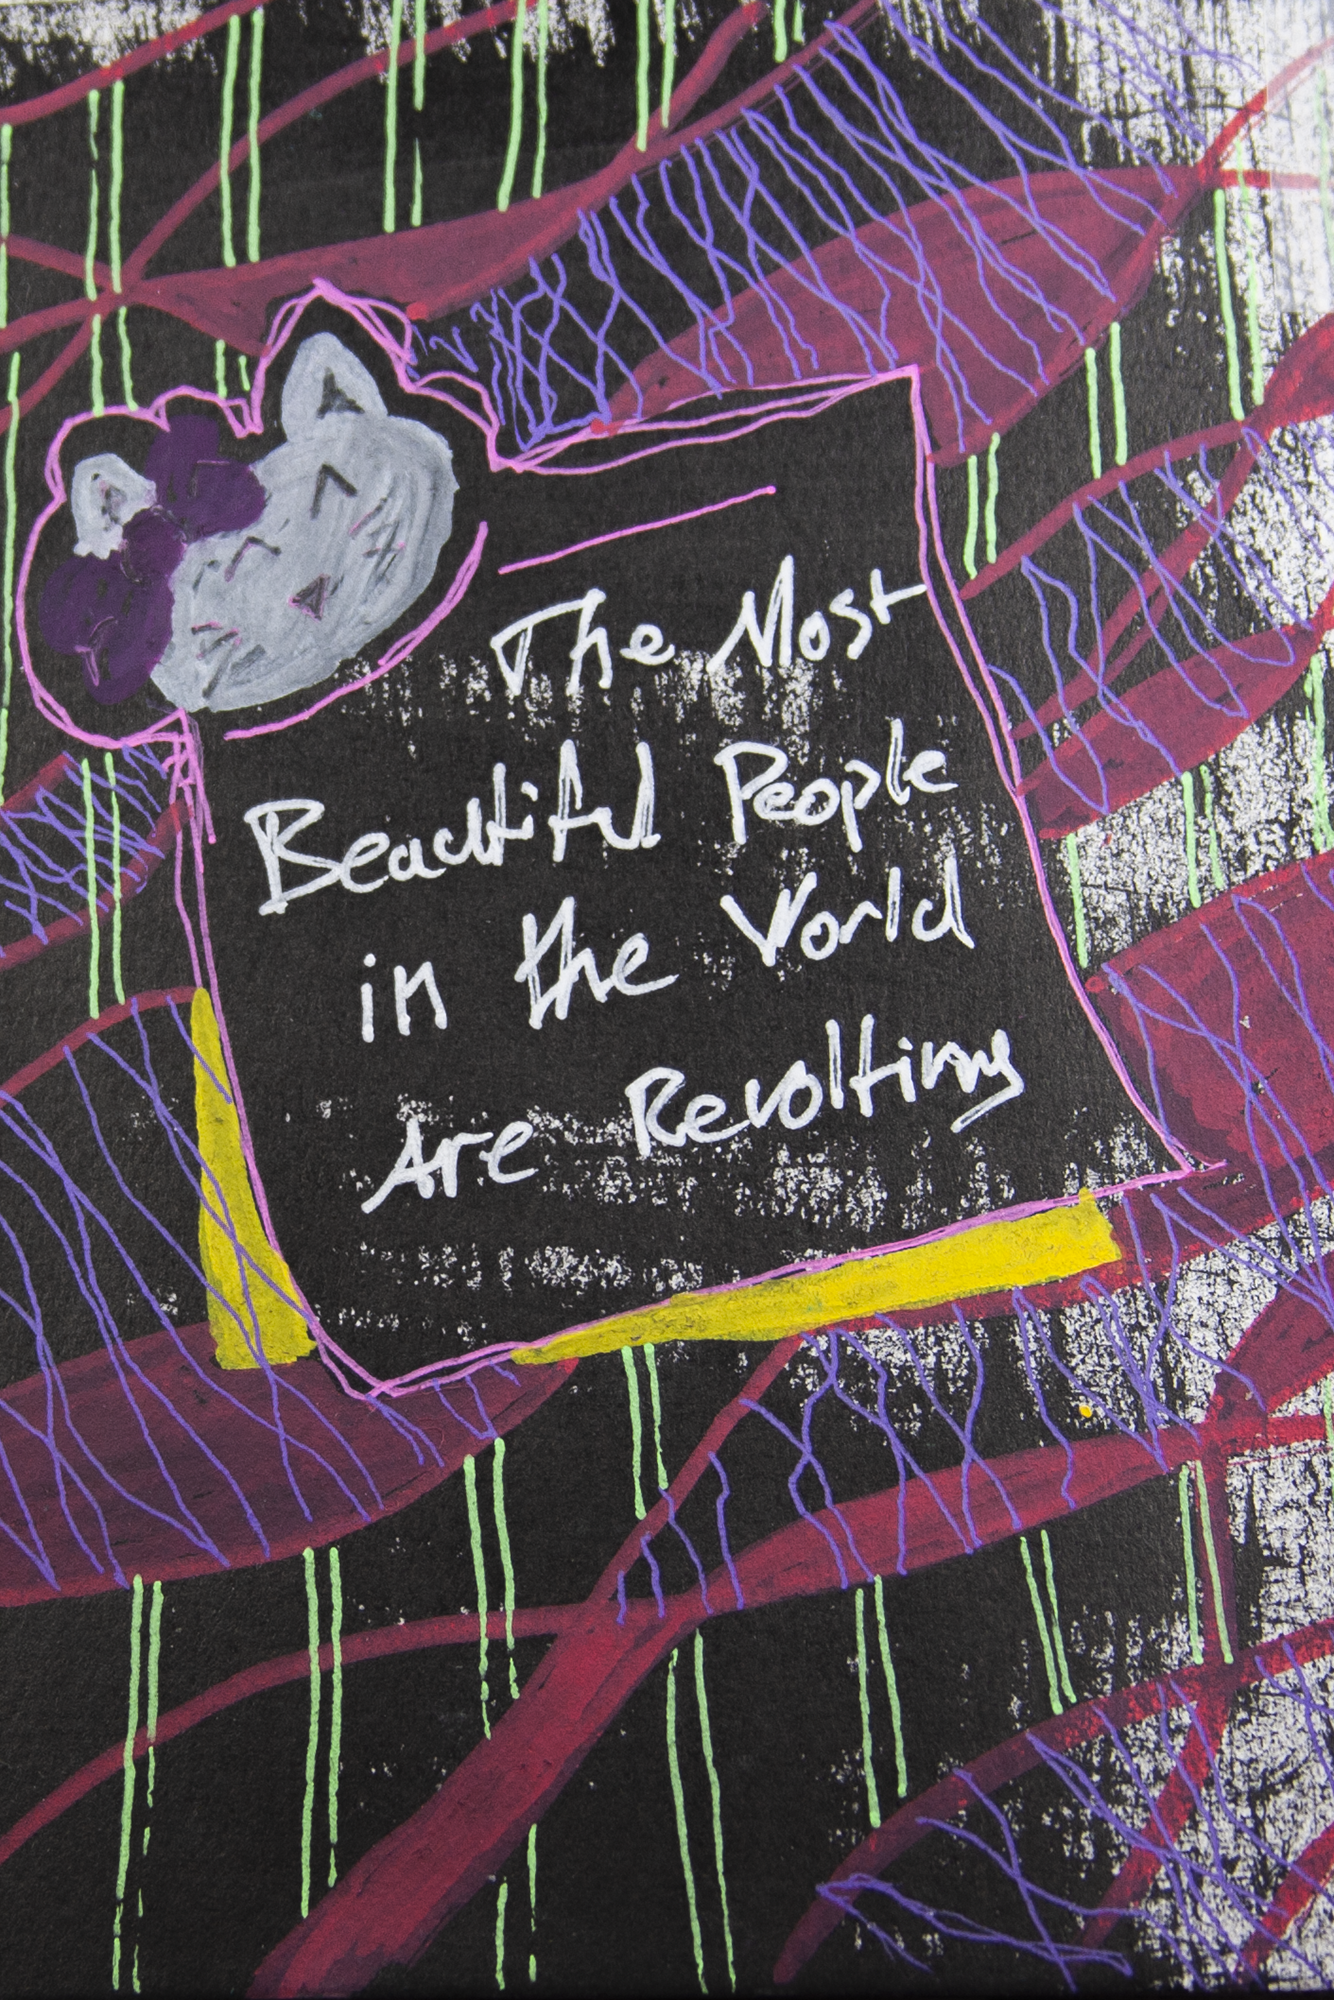 The Most
Beautiful People
in the World
Are Revolting